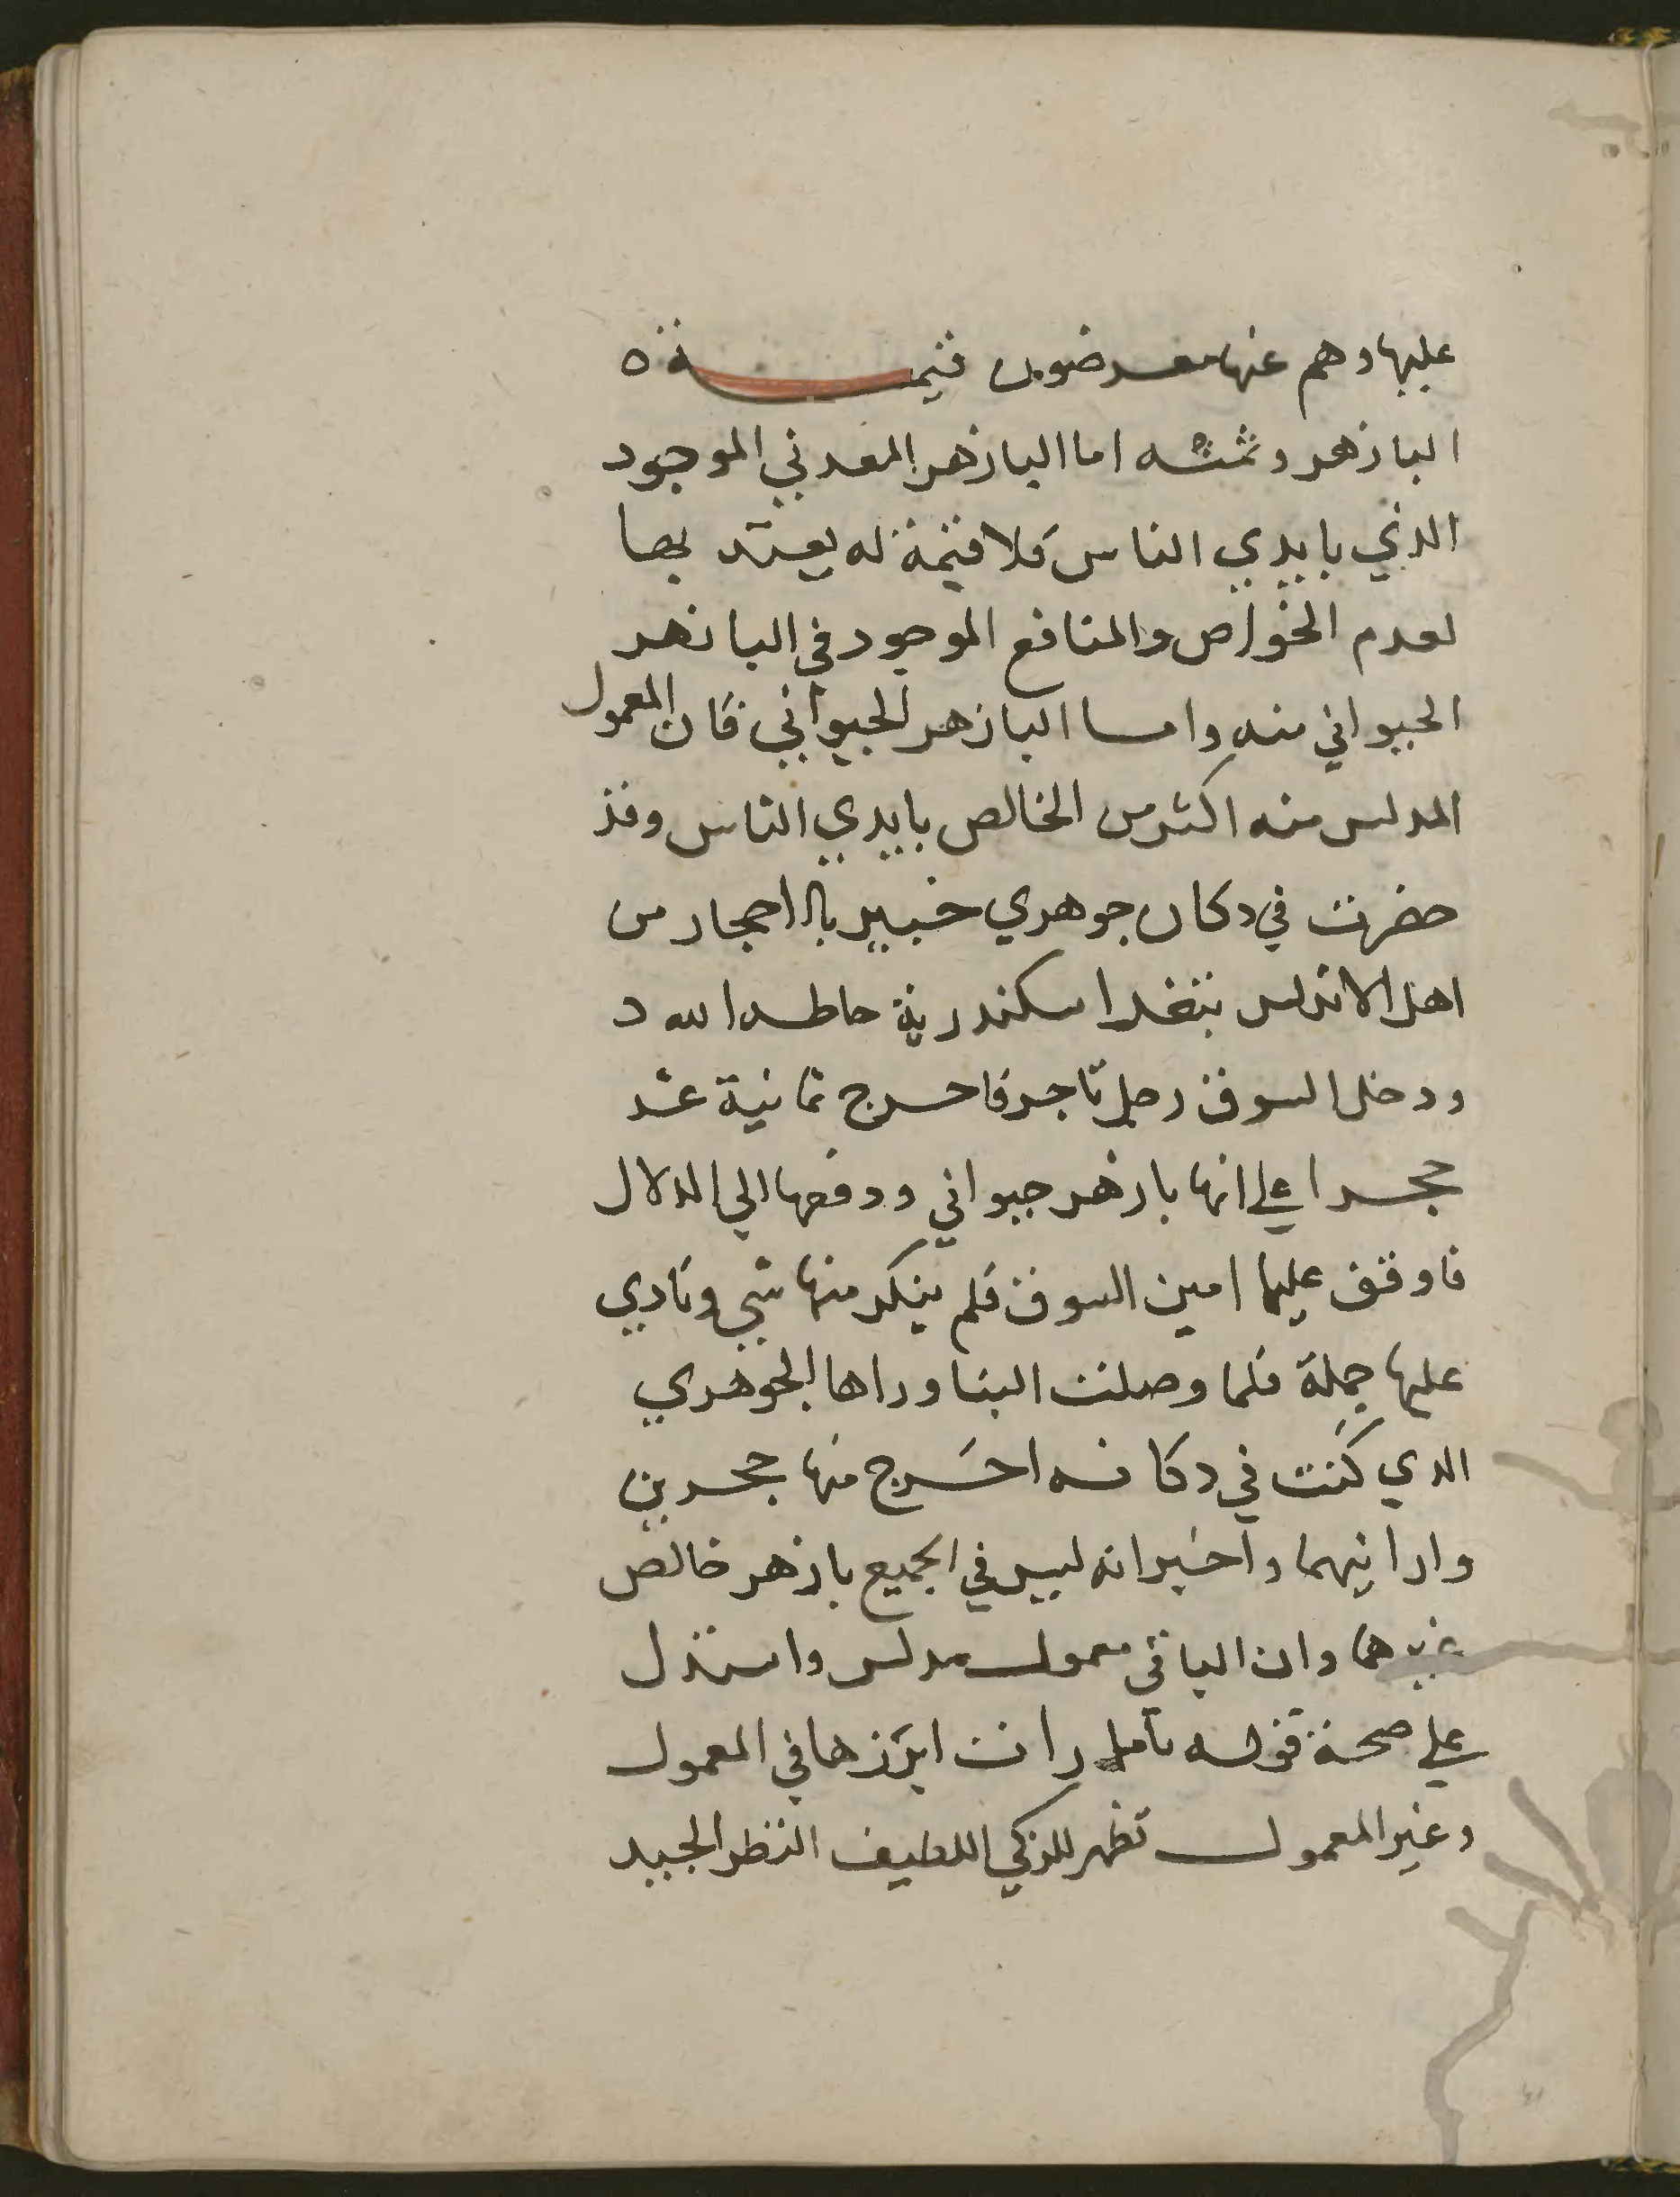 عليها وهم عنها معرضون قيمة ه
البازهر وثمنه اما البازهر المعدني الموجود
الذي بايدي الناس فلا قيمة له يعتد بها
لعدم الخواص والمنافع الموجود في البازهر
الحيواني منه واما البازهر الحيواني فان المعمول
المدلس منه اكثر من الخالص بايدي الناس وقد
حضرت في دكان جوهري خبير بالاحجار من
اهل الاندلس بثغر اسكندرية حاطه الله
ودخل السوق رجل تاجر فاخرج ثمانية عشر
حجرا علي انها بازهر حيواني ودفعها الي الدلال
فاوقف عليها امين السوق فلم ينكر منها شي ونادي
عليها جملة فلما وصلت الينا وراها الجوهري
الذي كنت في دكانه اخرج منها حجرين
وارانيهما واخبر انه ليس في الجميع بازهر خالص
غيرهما وان الباقي معمول مدلس واستدل
علي صحة قوله بامارات ابرزها في المعمول
وغير المعمول تظهر للزكي اللطيف النظر الجيد